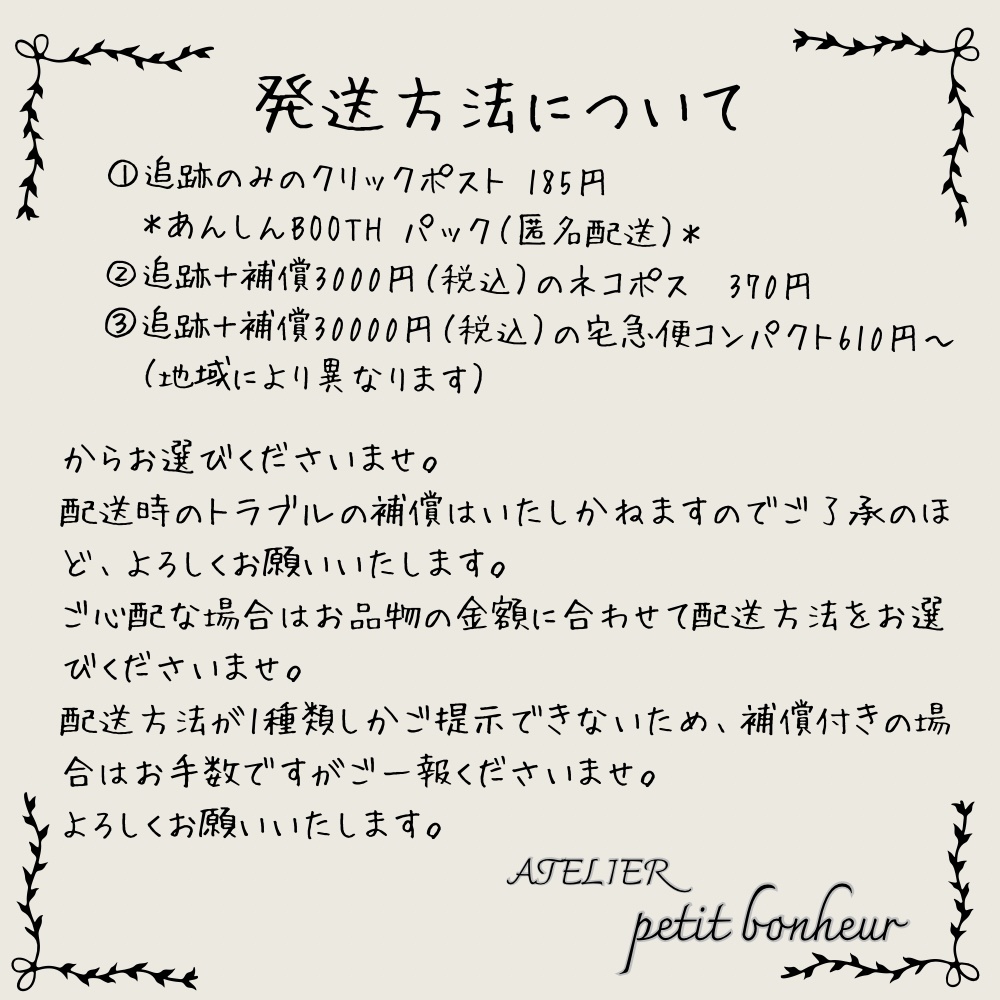 発送方法について
①追跡のみのクリックポスト 185円
*あんしんBOOTH パック(匿名配送)*
②追跡+補償3000円(税込)のネコポス 370円
③追跡+補償30000円(税込)の宅急便コンパクト610円~
(地域により異なります)
からお選びくださいませ。
配送時のトラブルの補償はいたしかねますのでご了承のほ
ど、よろしくお願いいたします。
ご心配な場合はお品物の金額に合わせて配送方法をお選
びくださいませ。
配送方法が1種類しかご提示できないため、補償付きの場
合はお手数ですがご一報くださいませ。
よろしくお願いいたします。
ATELIER
petit bonheur